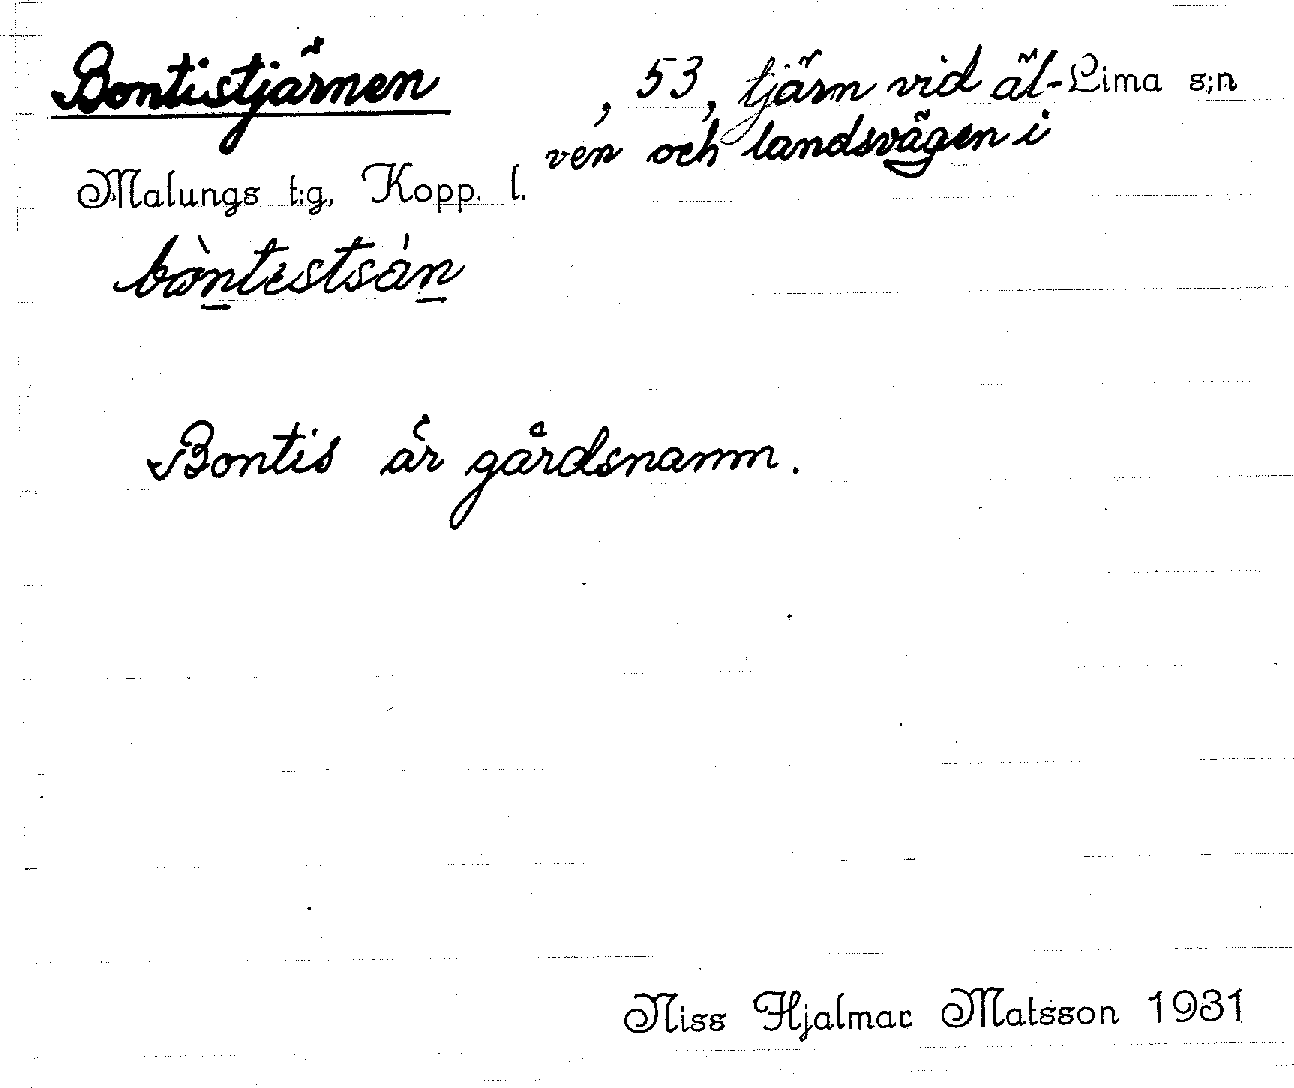 Bontistjärnen, 53, tjärn vid äl- Lima s:n
ven och landsvägen i
Malungs t:g, Kopp. l.
bòntestsàn
Bontis är gårdsnamn.
Niss Hjalmar Matsson 1931